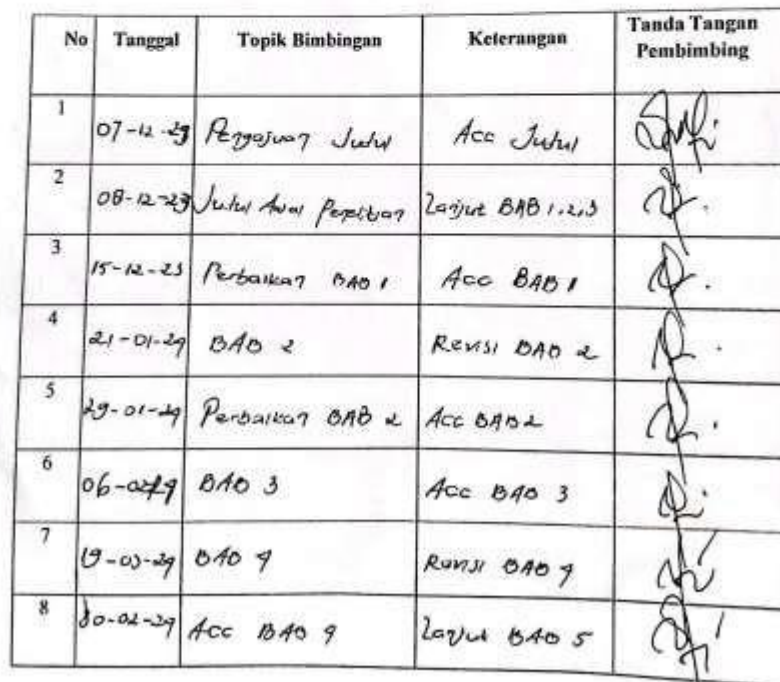 No Tanggal Topik Bimbingan Keterangan Tanda Tangan Pembimbing
1 07-12-23 Pengajuan Judul Acc Judul
2 08-12-23 Judul Awal Penelitian Lanjut BAB 1,2,3
3 15-12-23 Perbaikan BAB 1 Acc BAB 1
4 21-01-24 BAB 2 Revisi BAB 2
5 29-01-24 Perbaikan BAB 2 Acc BAB 2
6 BAB 3 Acc BAB 3
7 BAB 4 Revisi BAB 4
8 Acc BAB 4 Lanjut BAB 5